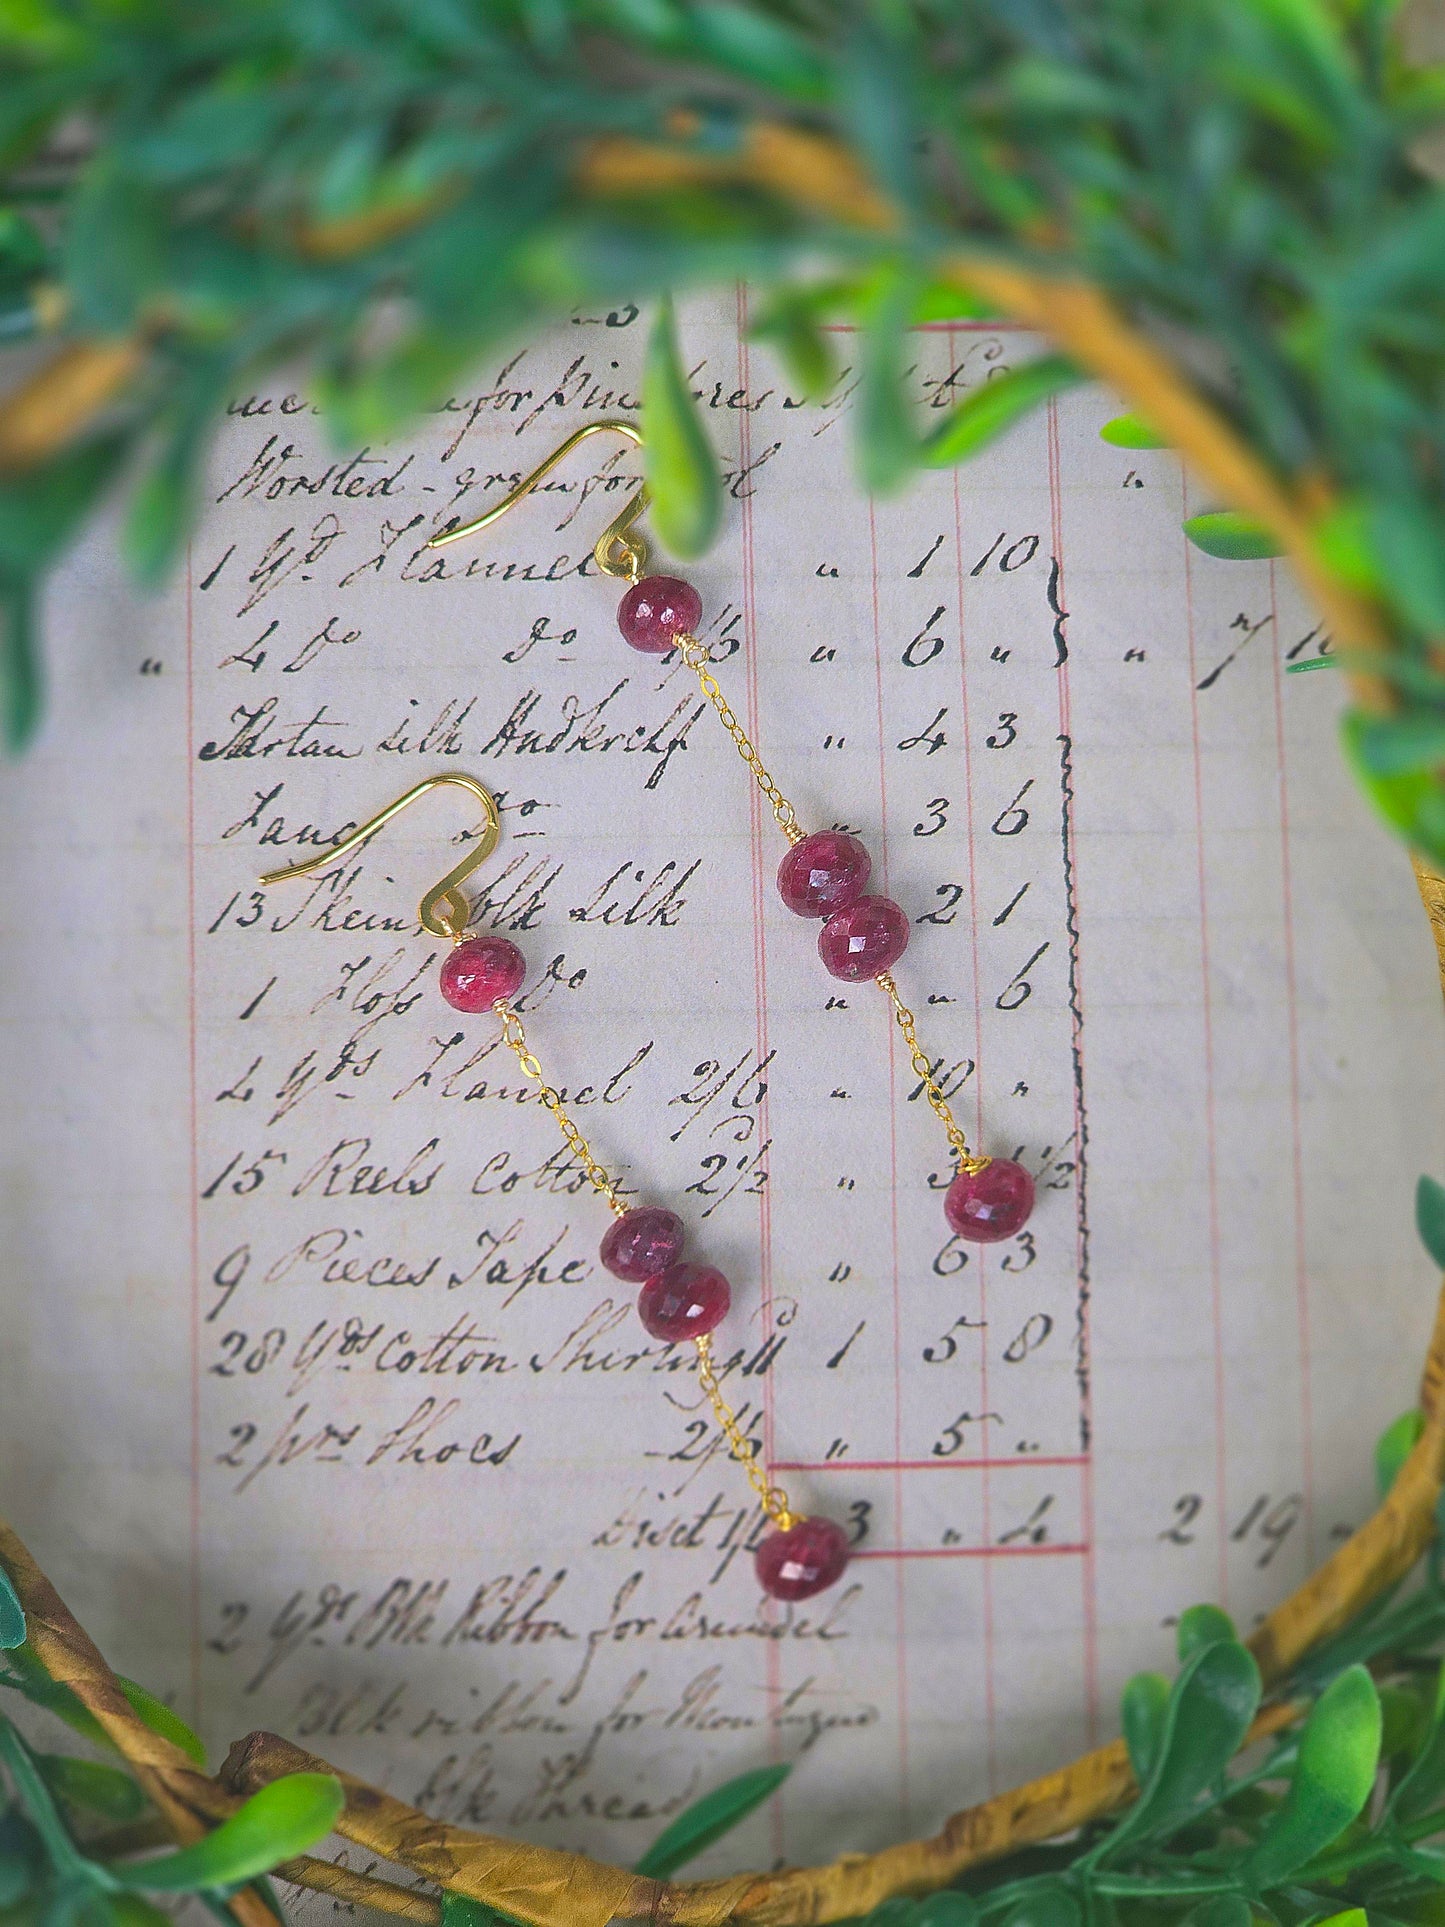 for
Worsted - green for
1 Yd. Flannel " 1 10
" 4 Do Do 1/6 " 6 " " 7 10
Tartan silk Hndkrchf " 4 3
Fancy Do " 3 6
13 Skeins blk Silk 2 1
1 Do " " 6
4 Yds Flannel 2/6 " 10 "
15 Reels Cotton 2½ " 3 1½
9 Pieces Tape " 6 3
28 Yds Cotton Shirting 11 1 5 8
2 prs Shoes - 2/6 " 5 "
3 " 4 2 19 "
2 Yds Blk Ribbon for Arundel
Blk ribbon for Montague
Blk Thread